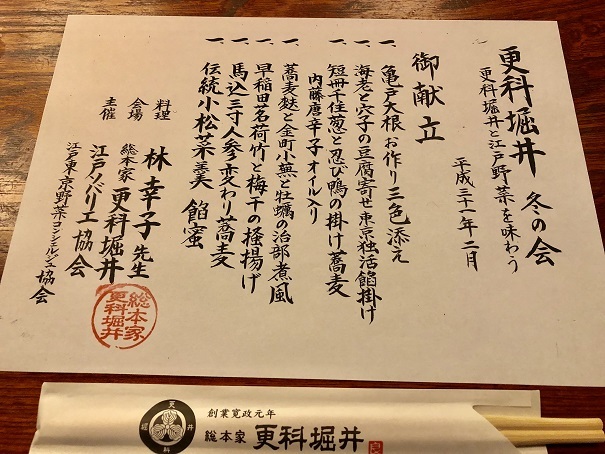 更科堀井 冬の会
更科堀井と江戸野菜を味わう
平成三十一年二月
御献立
一、亀戸大根お作り三色添え
一、海老と穴子の豆腐寄せ東京独活餡掛け
一、短冊千住葱と忍び鴨の掛け蕎麦
内藤唐辛子オイル入り
一、蕎麦麩と金町小蕪と牡蠣の治部煮風
一、早稲田茗荷竹と梅干の掻揚げ
一、馬込三寸人参変わり蕎麦
一、伝統小松菜羹 餡蜜
料理 林幸子先生
会場 総本家 更科堀井
主催 江戸ソバリエ協会
江戸東京野菜コンシェルジュ協会
総本家
更科堀井
更科
堀井
創業寛政元年
総本家 更科堀井